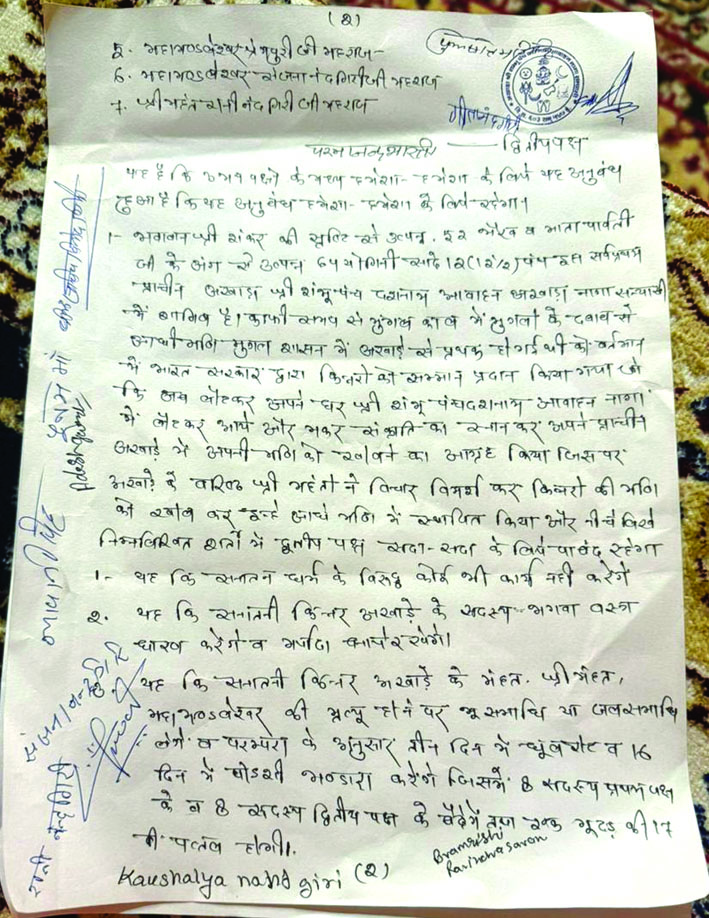 (2)
5. महामण्डलेश्वर प्रेमपुरी जी महाराज
6. महामण्डलेश्वर संजनानंद गिरी जी महाराज
7. श्री महंत रानी नंद गिरी जी महाराज
द्वितीय पक्ष
यह है कि उभय पक्षो के मध्य हमेशा-हमेशा के लिये यह अनुबंध
हुआ है कि यह अनुबंध हमेशा-हमेशा के लिये रहेगा।
1- भगवान श्री शंकर की सृष्टि से उत्पन्न, 52 भैरव व माता पार्वती
जी के अंग से उत्पन्न 64 योगिनी साढे 12 (12½) पंथ इस सर्वप्रथम
प्राचीन अखाड़ा श्री शंभू पंच दशनाम आवाहन अखाड़ा नागा सन्यासी
में शामिल है। काफी समय से मुगल काल में मुगलो के दबाव से
मढी मुगल शासन में अखाड़े से प्रथक हो गई थी को वर्तमान
में भारत सरकार द्वारा किन्नरो को सम्मान प्रदान किया गया जो
कि अब लौटकर अपने घर श्री शंभू पंचदशनाम आवाहन नागा
में लौटकर आये और मकर संक्रांति का स्नान कर अपने प्राचीन
अखाड़े में अपनी मढि को खोलने का आग्रह किया जिस पर
अखाड़े के वरिष्ठ श्री महंतो ने विचार विमर्श कर किन्नरो की मढि
को खोल कर इन्हे मढि में स्थापित किया और नीचे लिखे
निम्नलिखित शर्तो में द्वितीय पक्ष सदा-सदा के लिये पाबंद रहेगा
1- यह कि सनातन धर्म के विरुद्ध कोई भी कार्य नही करेंगे
2. यह कि सनातनी किन्नर अखाड़े के सदस्य भगवा वस्त्र
धारण करेंगे व मर्यादा बनाये रखेंगे।
यह कि सनातनी किन्नर अखाड़े के महंत, श्री महंत,
महामण्डलेश्वर की मृत्यु होने पर भू समाधि या जलसमाधि
लेंगे व परम्परा के अनुसार तीन दिन में धूल रोट व 16
दिन में षोडशी भण्डारा करेंगे जिसमें 8 सदस्य प्रथम पक्ष
के व 8 सदस्य द्वितीय पक्ष के बैठेगें तथा एक गूदड़ की 17
वी पत्तल होगी।
Kaushalya nand giri (2)
Ravindra saran
संजनानन्द गिरी
रानी नन्द गिरी
पूनम माँ